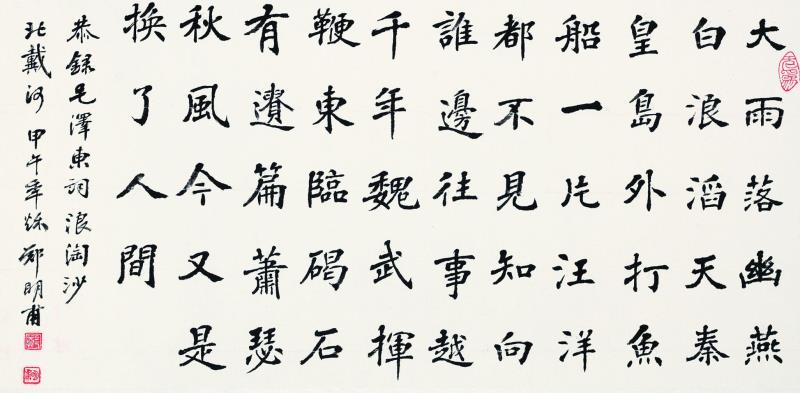 大雨落幽燕
白浪滔天秦
皇島外打魚
船一片汪洋
都不見知向
誰邊往事越
千年魏武揮
鞭東臨碣石
有遺篇蕭瑟
秋風今又是
換了人間
恭録毛澤東詞浪淘沙
北戴河 甲午年秋 明甫